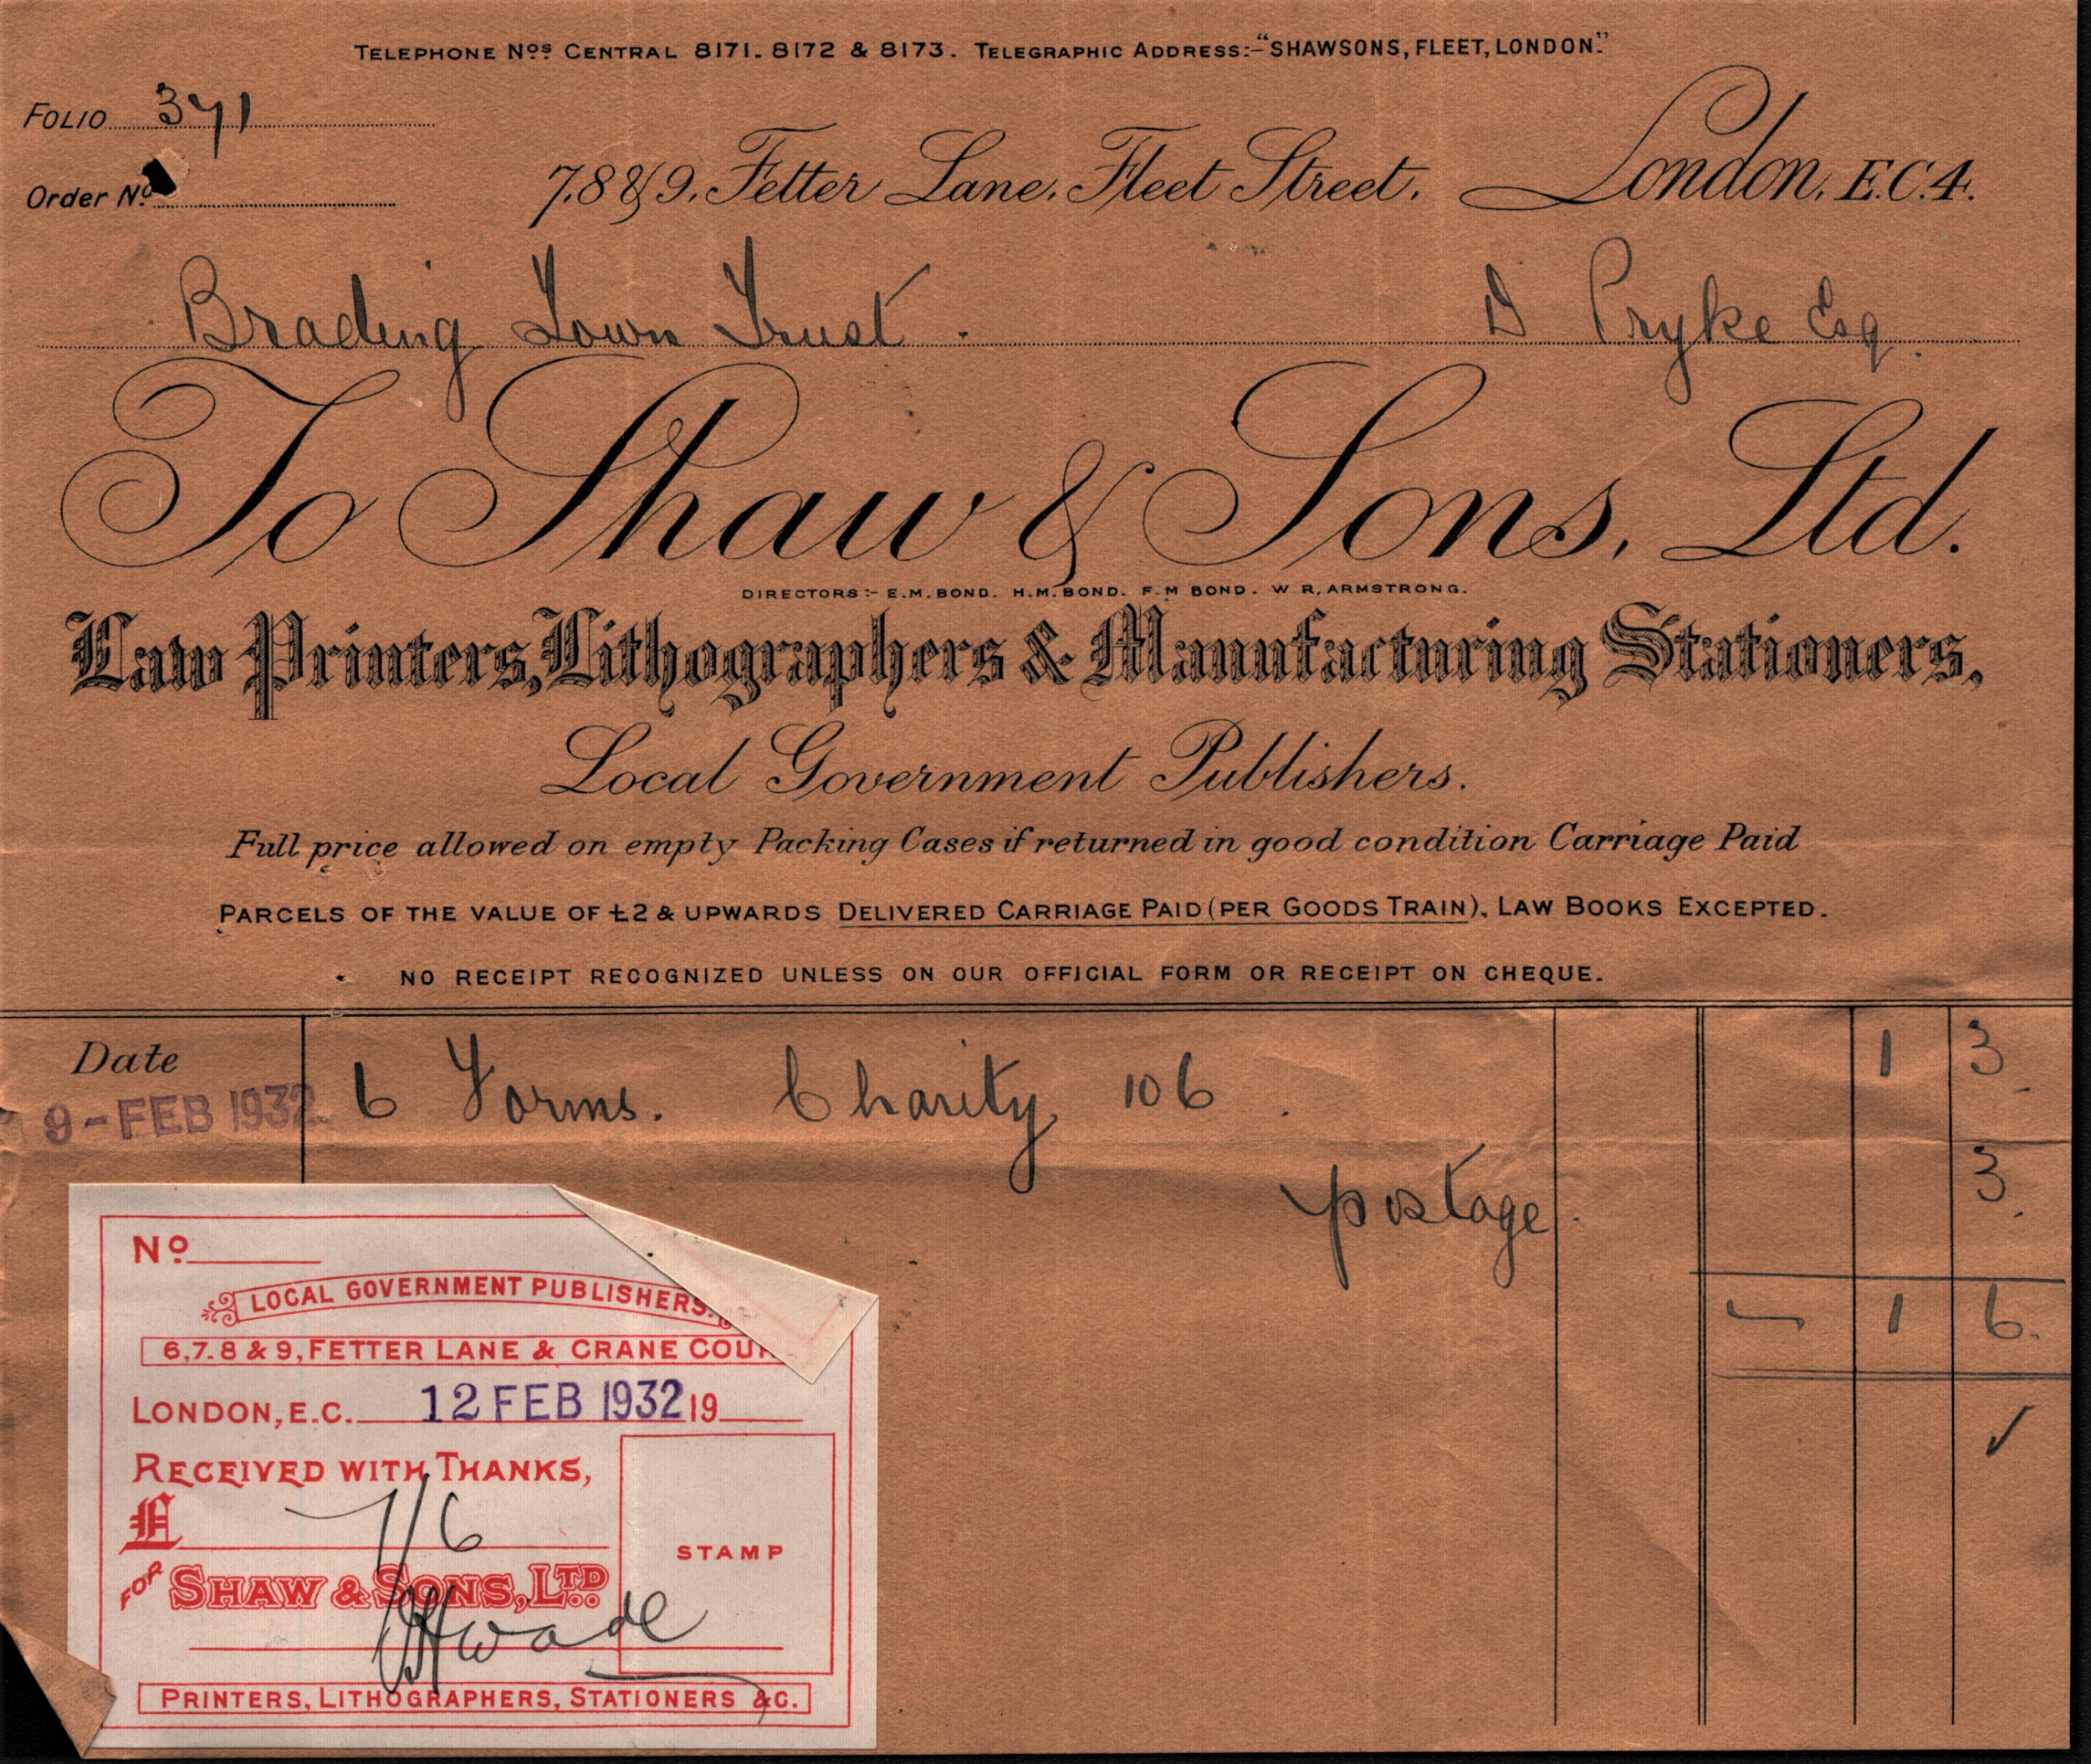 TELEPHONE Nos CENTRAL 8171. 8172 & 8173. TELEGRAPHIC ADDRESS:-"SHAWSONS, FLEET, LONDON."
FOLIO 371
7.8 & 9. Fetter Lane. Fleet Street. London, E.C.4.
Order No.
Brading Town Trust. D Pryke Esq.
To Shaw & Sons, Ltd.
DIRECTORS:- E.M. BOND. H.M. BOND. F.M BOND. W R. ARMSTRONG.
Law Printers, Lithographers & Manufacturing Stationers,
Local Government Publishers.
Full price allowed on empty Packing Cases if returned in good condition Carriage Paid
PARCELS OF THE VALUE OF £2 & UPWARDS DELIVERED CARRIAGE PAID (PER GOODS TRAIN), LAW BOOKS EXCEPTED.
NO RECEIPT RECOGNIZED UNLESS ON OUR OFFICIAL FORM OR RECEIPT ON CHEQUE.
Date
9-FEB 1932 6 Forms. Charity 106. 1 3.
postage. 3.
1 6.
No
LOCAL GOVERNMENT PUBLISHERS.
6,7.8 & 9, FETTER LANE & CRANE COUR
LONDON, E.C. 12 FEB 1932 19
RECEIVED WITH THANKS,
£ 1/6
STAMP
FOR SHAW & SONS, LTD.
PRINTERS, LITHOGRAPHERS, STATIONERS &C.